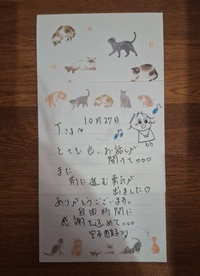 10月27日
とても良いお話しが
聞けて。。。
また
前に進む勇気が
出ました♡
ありがとうございます。
自由時間に
感謝を込めて。。。